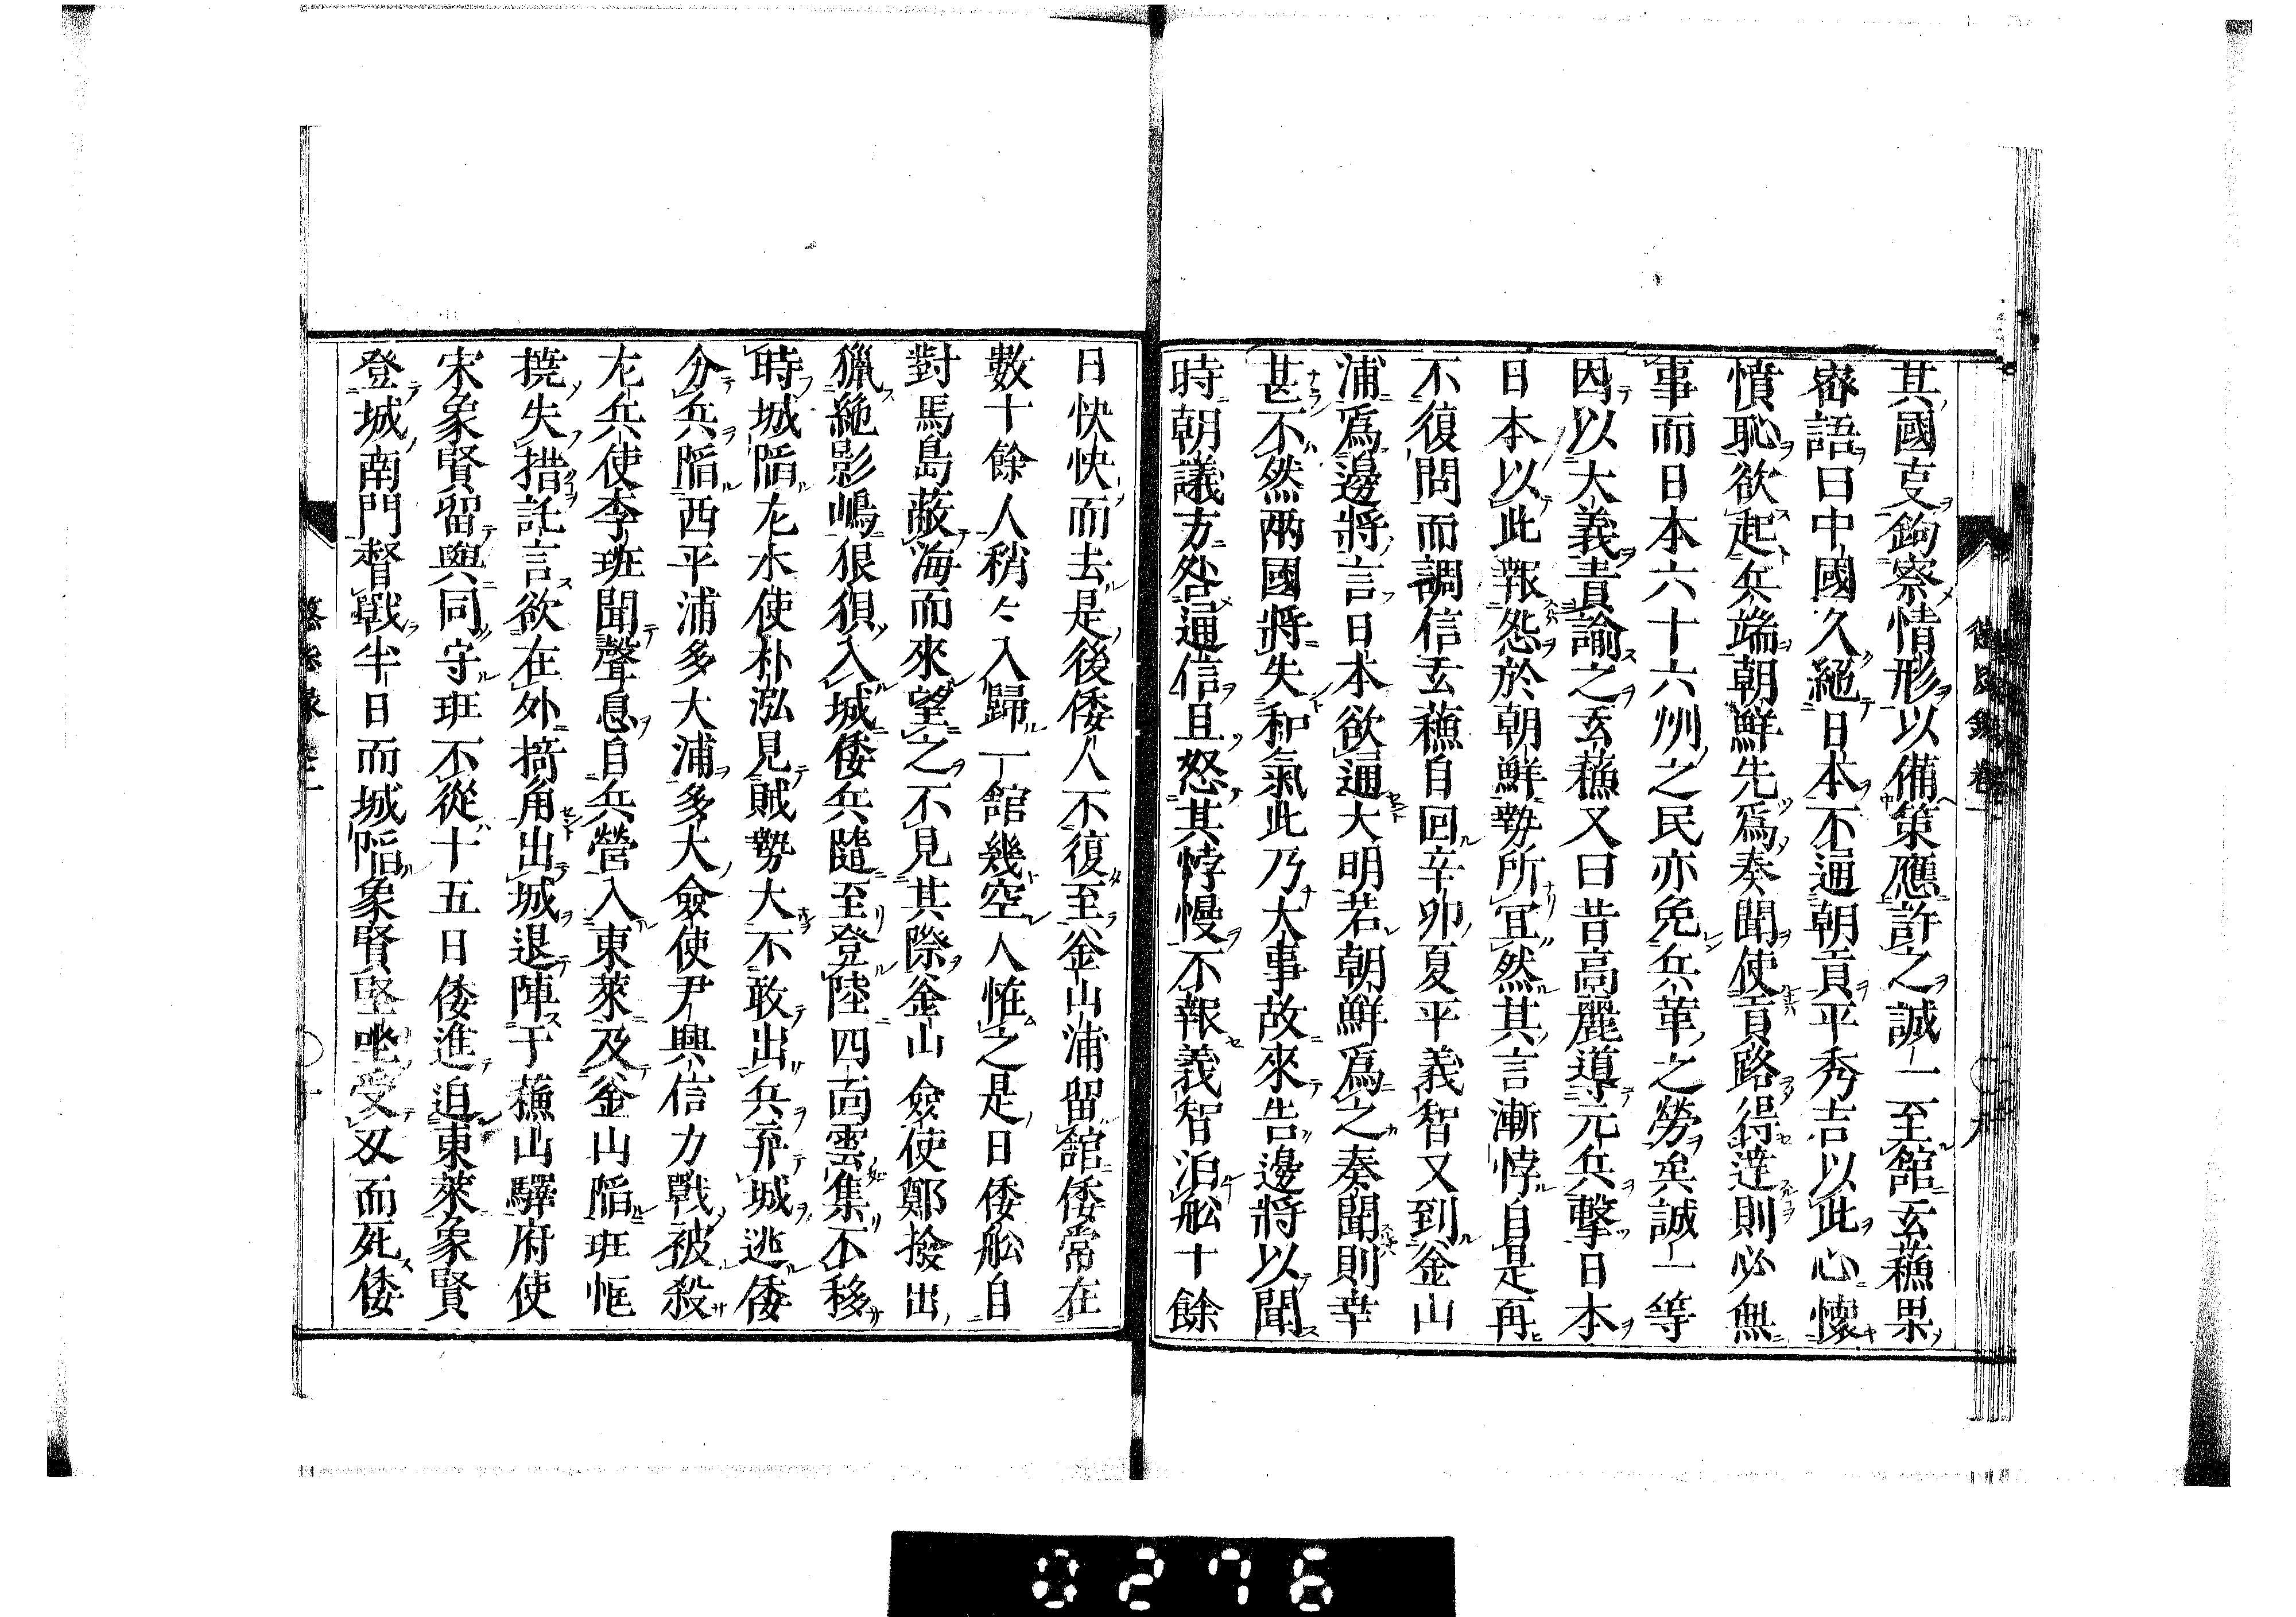 其國吏鉤察情形以備策應許之誠一至館玄蘓果
密語曰中國久絕日本不通朝貢平秀吉以此心懷
憤恥欲起兵端朝鮮先爲奏聞使貢路得達則必無
事而日本六十六州之民亦免兵革之勞矣誠一等
因以大義責諭之玄蘓又曰昔高麗導元兵擊日本
日本以此報怨於朝鮮勢所冝然其言漸悖自是再
不復問而調信玄蘓自回辛卯夏平義智又到釜山
浦爲邊將言日本欲通大明若朝鮮爲之奏聞則幸
甚不然兩國將失和氣此乃大事故來告邊將以聞
時朝議方咎通信且怒其悖慢不報義智泊舩十餘
日怏怏而去是後倭人不復至釜山浦留館倭常在
數十餘人稍〻入歸一館幾空人恠之是日倭舩自
對馬島蔽海而來望之不見其際釜山僉使鄭撥出
獵絶影嶋狼狽入城倭兵隨至登陸四面雲集不移
時城陷左水使朴泓見賊勢大不敢出兵弃城逃倭
分兵陷西平浦多大浦多大僉使尹興信力戰被殺
左兵使李珏聞聲息自兵營入東萊及釜山陷珏恇
撓失措託言欲在外掎角出城退陣于蘓山驛府使
宋象賢留與同守珏不從十五日倭進迫東萊象賢
登城南門督戰半日而城陷象賢堅坐受刃而死倭
懲毖錄 卷一
十
0276